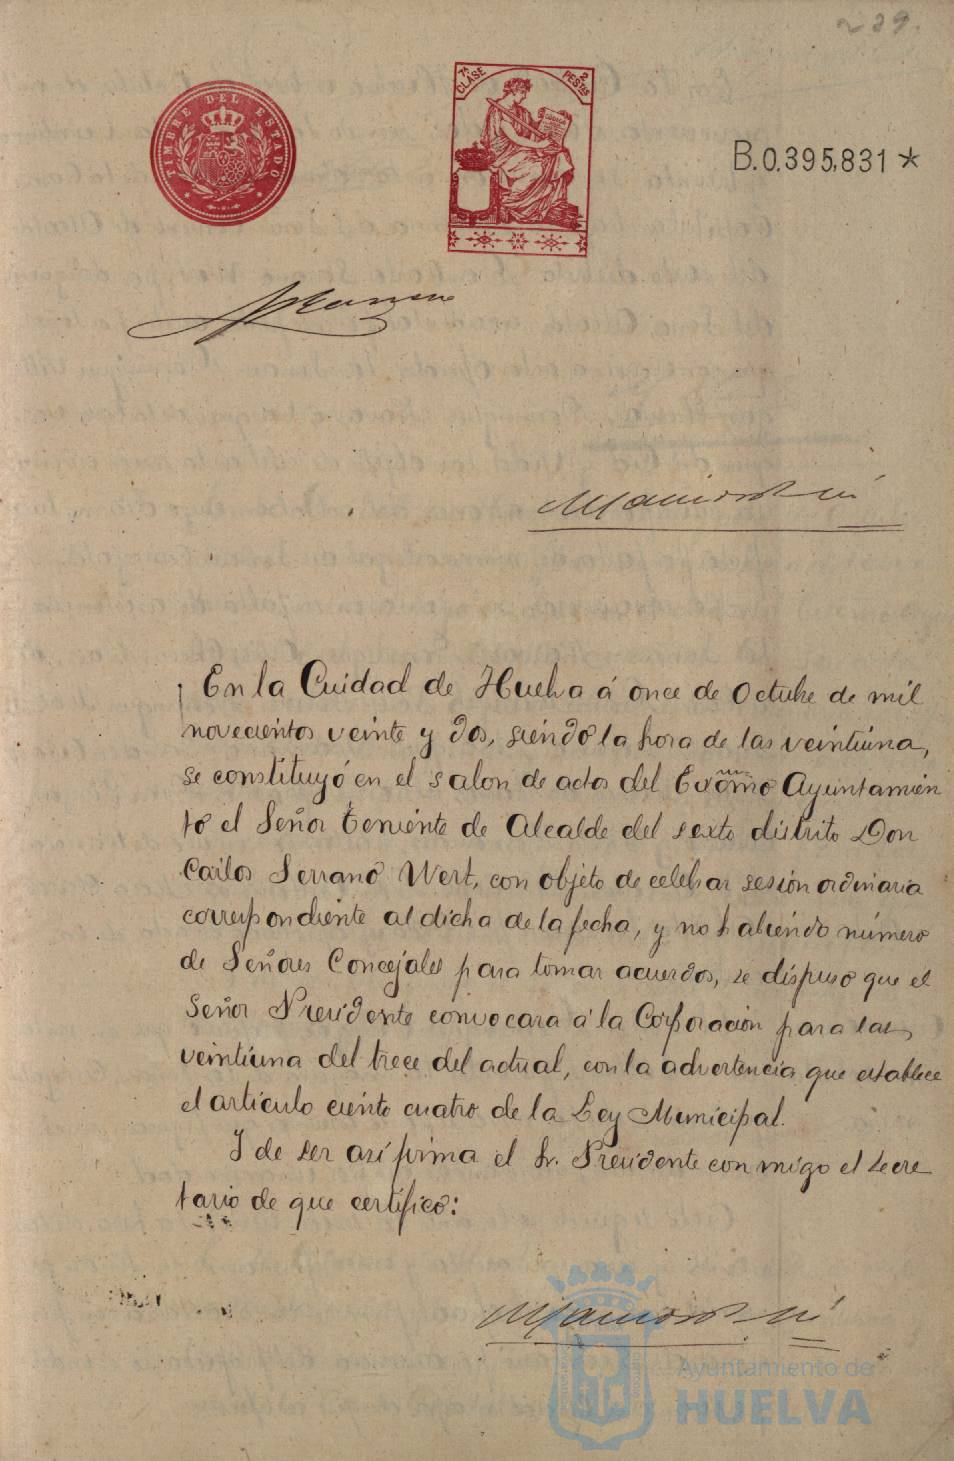 239.
TIMBRE DEL ESTADO
7ª CLASE
2 PESTAS
B.0.395,831 *
En la Cuidad de Huelva á once de Octubre de mil
novecientos veinte y dos, siendo la hora de las veintiuna,
se constituyó en el salon de actos del Excmo Ayuntamien
to el Señor Teniente de Alcalde del sexto distrito Don
Carlos Serrano Wert, con objeto de celebar sesión ordinaria
correspondiente al dicha de la fecha, y no habiendo número
de Señores Concejales para tomar acuerdos, se dispuso que el
Señor Presidente convocara á la Corporación para las
veintiuna del trece del actual, con la advertencia que establece
el artículo ciento cuatro de la Ley Municipal.
Y de ser así firma el Sr. Presidente conmigo el Secre
tario de que certifico:
Ayuntamiento de
HUELVA